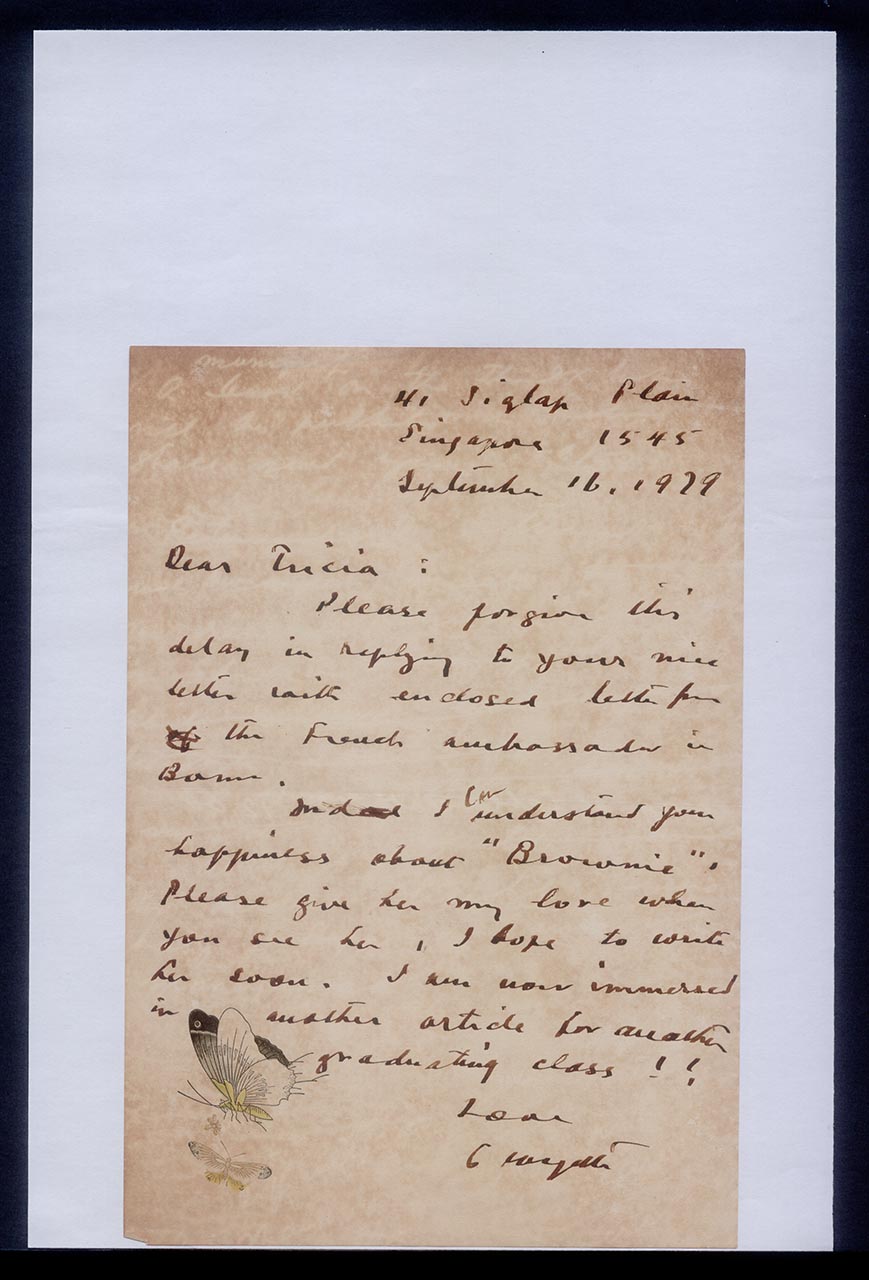 41 Siglap Plain
Singapore 1545
September 16, 1979
Dear Tricia :
Please forgive this
delay in replying to your nice
letter with enclosed letter from
the French ambassador in
Bonn.
Indeed I can understand your
happiness about "Brownie".
Please give her my love when
you see her, I hope to write
her soon. I am now immersed
in another article for another
graduating class !!
Love